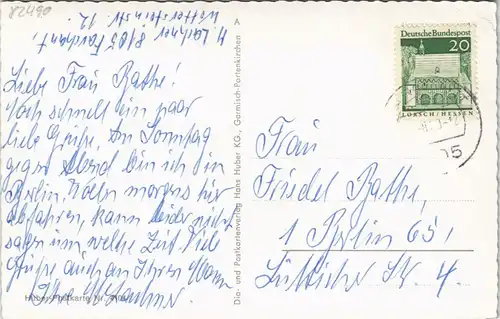 82490
H. Lachner 8105 Farchant,
12.
Liebe Frau Rathe!
Noch schnell ein paar
liebe Grüße. Am Sonntag
gegen Abend bin ich in
Berlin. Wollen morgens hier
abfahren, kann leider nicht
sagen um welche Zeit. Viele
Grüße auch an Ihren Mann
Ihre
Huber-Postkarte Nr.
Dia- und Postkartenverlag Hans Huber KG, Garmisch-Partenkirchen A
Deutsche Bundespost
20
LORSCH/HESSEN
Frau
Friedel Rathe,
1 Berlin 65,
Lütticher Str. 4.